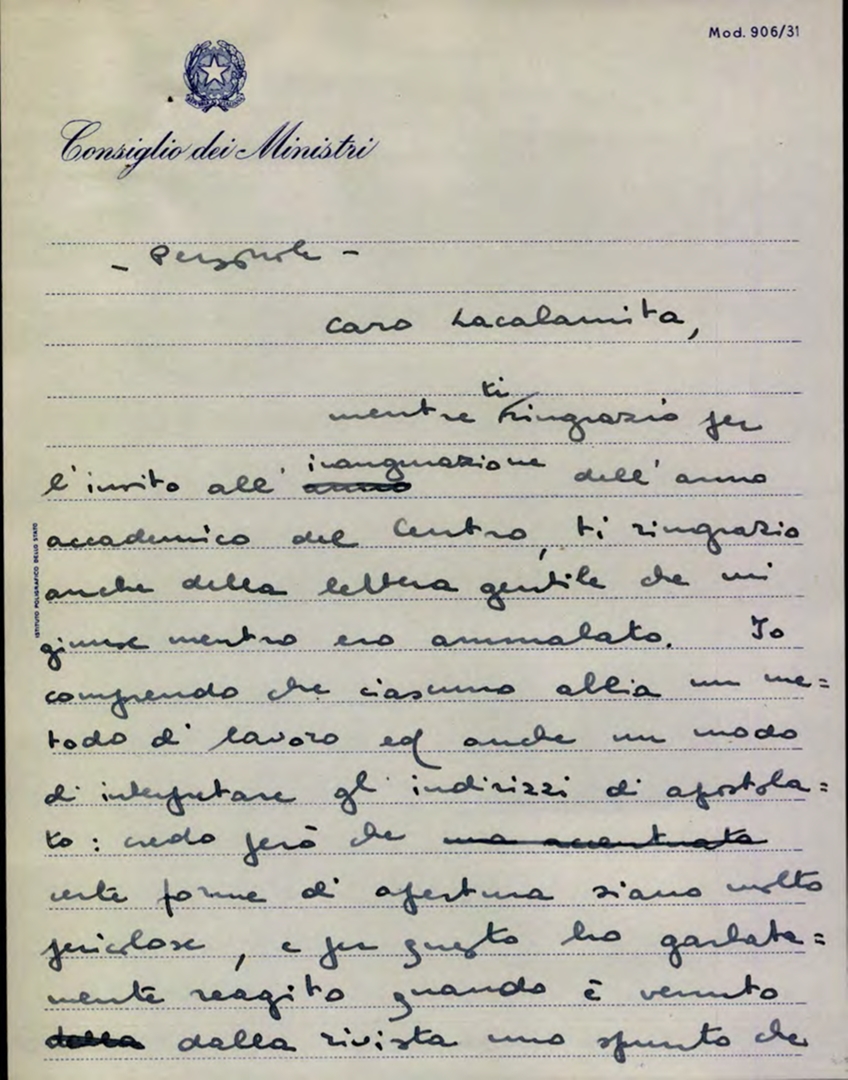 Mod. 906/31
Consiglio dei Ministri
- Personale -
Caro Lacalamita,
mentre ti ringrazio per
l'invito all' anno inaugurazione dell'anno
accademico del Centro, ti ringrazio
anche della lettera gentile che mi
giunse mentro ero ammalato. Io
comprendo che ciascuno abbia un me=
todo di lavoro ed anche un modo
di interpretare gl' indirizzi di apostola=
to: credo però che una accentuata
certe forme di apertura siano molto
pericolose, e per questo ho garbata=
mente reagito quando è venuto
della dalla rivista uno spunto che
ISTITUTO POLIGRAFICO DELLO STATO